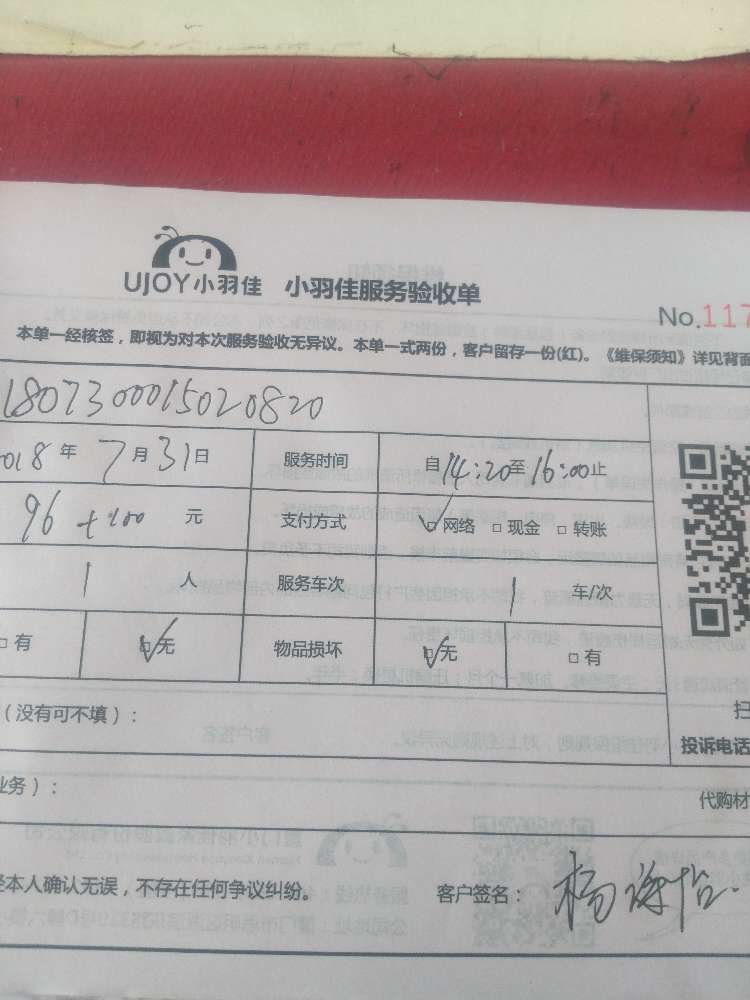 UJOY小羽佳 小羽佳服务验收单
No.117
本单一经核签，即视为对本次服务验收无异议。本单一式两份，客户留存一份(红)。《维保须知》详见背面
1807300015020820
018年 7月31日 服务时间 自14:20至16:00止
96+100 元 支付方式 网络 现金 转账
1 人 服务车次 1 车/次
有 无 物品损坏 无 有
（没有可不填）：
扫
投诉电话
业务）：
代购材
经本人确认无误，不存在任何争议纠纷。 客户签名：杨